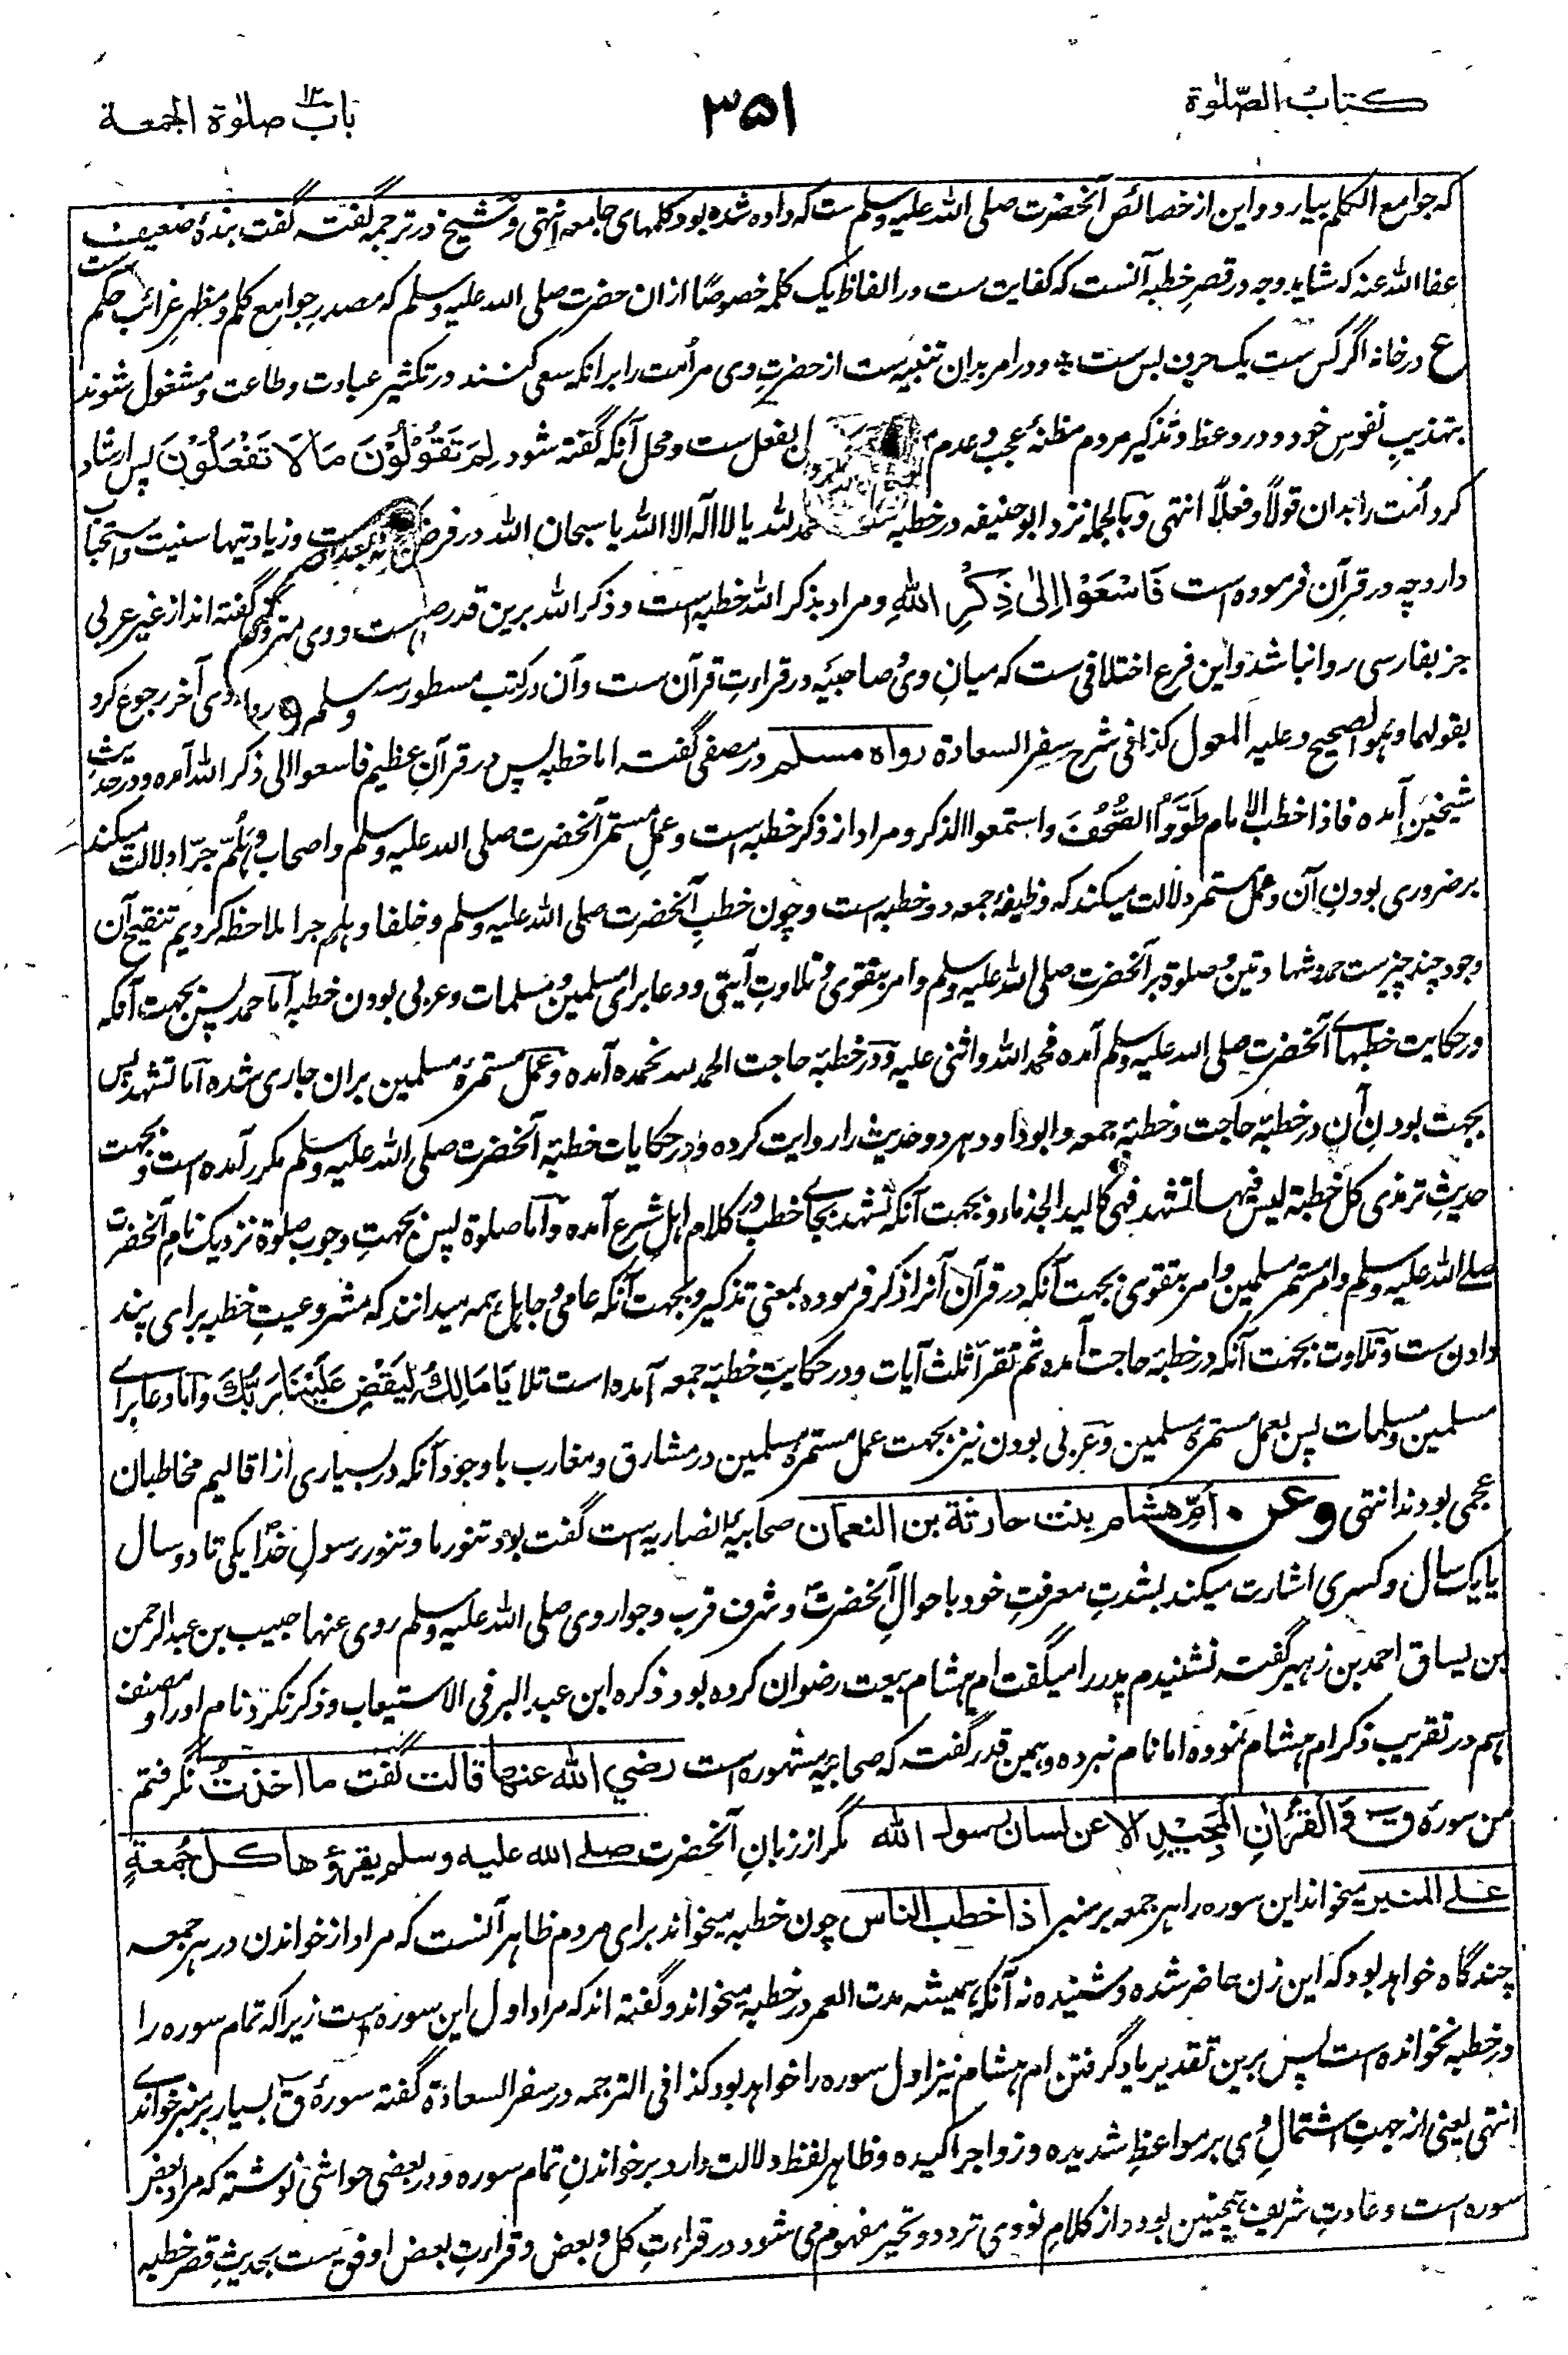 کتاب الصّلوٰة
۳۵۱
باب صلوٰة الجمعة
که جوامع الکلم بیارد و این از خصائص آنحضرت صلی الله علیه وسلم ست که داده شده بود کلمهای جامعه انتهی و شیخ در ترجمه گفته گفت بندهٔ ضعیف
عفا الله عنه که شاید وجه در قصر خطبه آنست که کفایت ست در الفاظ یک کلمه خصوصًا ازان حضرت صلی الله علیه وسلم که مصدر جوامع کلم و مظهر غرائب حکم ست
ع در خانه اگر کس ست یک حرف بس ست ٭ و در امر بدان تنبیه ست از حضرت وی مر امت را برانکه سعی کنند در تکثیر عبادت و طاعت و مشغول شوند
بتهذیب نفوس خود و در وعظ و تذکیر مردم مظنهٔ عجب و عدم بفعل ست و محل آنکه گفته شود لِمَ تَقُوْلُوْنَ مَا لَا تَفْعَلُوْنَ پس ارشاد
کرد امت را بدان قولاً و فعلاً انتهی و بالجمله نزد ابو حنیفه در خطبه الحمد لله یا لا اله الا الله یا سبحان الله در فرض ست و زیادتیها سنیت و استحباب
دارد چه در قرآن فرموده است فَاسْعَوْا اِلٰی ذِکْرِ اللهِ و مراد بذکر الله خطبه است و ذکر الله برین قدر صادق است و وی گفته اند از غیر عربی
جز بفارسی روا نباشد و این فرع اختلافی ست که میان وی و صاحبیه در قراءت قرآن ست و آن در کتب مسطور وی آخر رجوع کرد
بقولهما و هو الصحیح و علیه المعول کذا فی شرح سفر السعادة رواه مسلم در مصفی گفته اما خطبه پس در قرآن عظیم فاسعوا الی ذکر الله آمده و در حدیث
شیخین آمده فاذا خطب الامام طَوَّوُا الصُّحُفَ و استمعوا الذکر و مراد از ذکر خطبه است و عمل مستمر آنحضرت صلی الله علیه وسلم و اصحاب و هَلُمَّ جرّا دلالت میکند
بر ضروری بودن آن و عمل مستمر دلالت میکند که وظیفهٔ جمعه دو خطبه است و چون خطب آنحضرت صلی الله علیه وسلم و خلفا و هلم جرا ملاحظه کردیم تنقیح آن
وجود چند چیز ست حمد و شهادتین و صلوة بر آنحضرت صلی الله علیه وسلم و امر بتقوی و تلاوت آیتی و دعا برای مسلمین و مسلمات و عربی بودن خطبه اما حمد پس بجهت آنکه
در حکایت خطبهاے آنحضرت صلی الله علیه وسلم آمده فحمد الله و اثنی علیه و در خطبهٔ حاجت الحمد لله نحمده آمده و عمل مستمرهٔ مسلمین بران جاری شده اما تشهد پس
بجهت بودن آن در خطبهٔ حاجت و خطبهٔ جمعه و ابو داود هر دو حدیث را روایت کرده و در حکایات خطبهٔ آنحضرت صلی الله علیه وسلم مکرر آمده است و بجهت
حدیث ترمذی کل خطبة لیس فیها تشهد فهی کالید الجذماء و بجهت آنکه تشهد بجاے خطب در کلام اهل شرع آمده و اما صلوة پس بجهت وجوب صلوة نزدیک نام آنحضرت
صلے الله علیه وسلم و امر مستمر مسلمین و امر بتقوی بجهت آنکه در قرآن آنرا ذکر فرموده بمعنی تذکیر و بجهت آنکه عامی و جاهل همه میدانند که مشروعیت خطبه برای پند
دادن ست و تلاوت بجهت آنکه در خطبهٔ حاجت آمده ثم تقرأ ثلث آیات و در حکایت خطبهٔ جمعه آمده است تلا یَا مَالِكُ لِیَقْضِ عَلَیْنَا رَبُّكَ و اما دعا براے
مسلمین و مسلمات پس بعمل مستمرهٔ مسلمین و عربی بودن نیز بجهت عمل مستمرهٔ مسلمین در مشارق و مغارب با وجود آنکه در بسیاری از اقالیم مخاطبان
عجمی بودند انتهی وعن امّ هشام بنت حارثة بن النعمان صحابیهٔ انصاریه است گفت بود تنور ما و تنور رسول خدا یکی تا دو سال
یا یک سال و کسری اشارت میکند بشدت معرفت خود باحوال آنحضرت و شرف قرب و جوار وی صلی الله علیه وسلم روی عنها حبیب بن عبد الرحمن
بن یساق احمد بن زهیر گفته شنیدم پدر را میگفت ام هشام بیعت رضوان کرده بود ذکره ابن عبد البر فی الاستیعاب و ذکر نکرد نام او را و مصنف
هم در تقریب ذکر ام هشام نموده اما نام نبرده و همین قدر گفت که صحابیه مشهوره است رضي الله عنها قالت گفت ما اخذتُ نگرفتم
من سورة قٓ وَالقُرْاٰنِ المَجِیْدِ الا عن لسان رسول الله مگر از زبان آنحضرت صلے الله علیه وسلم یقرؤها کل جُمعةٍ
علی المنبر میخواند این سوره را هر جمعه بر منبر اذا خطب الناس چون خطبه میخواند برای مردم ظاهر آنست که مراد از خواندن در هر جمعه
چند گاه خواهد بود که این زن حاضر شده و شنیده نه آنکه همیشه مدت العمر در خطبه میخواند و گفته اند که مراد اول این سوره است زیرا که تمام سوره را
در خطبه نخوانده است پس برین تقدیر یاد گرفتن ام هشام نیز اول سوره را خواهد بود کذا فی الترجمه در سفر السعادة گفته سورهٔ ق بسیار بر منبر خواندے
انتهی یعنی از جهت اشتمال وی بر مواعظ شدیده و زواجر اکیده و ظاهر لفظ دلالت دارد بر خواندن تمام سوره و در بعضی حواشی نوشته که مراد بعض
سوره است و عادت شریف همچنین بود و از کلام نووی تردد و تحیر مفهوم می شود در قراءت کل و بعض و قراءت بعض اوفق ست بحدیث قصر خطبه